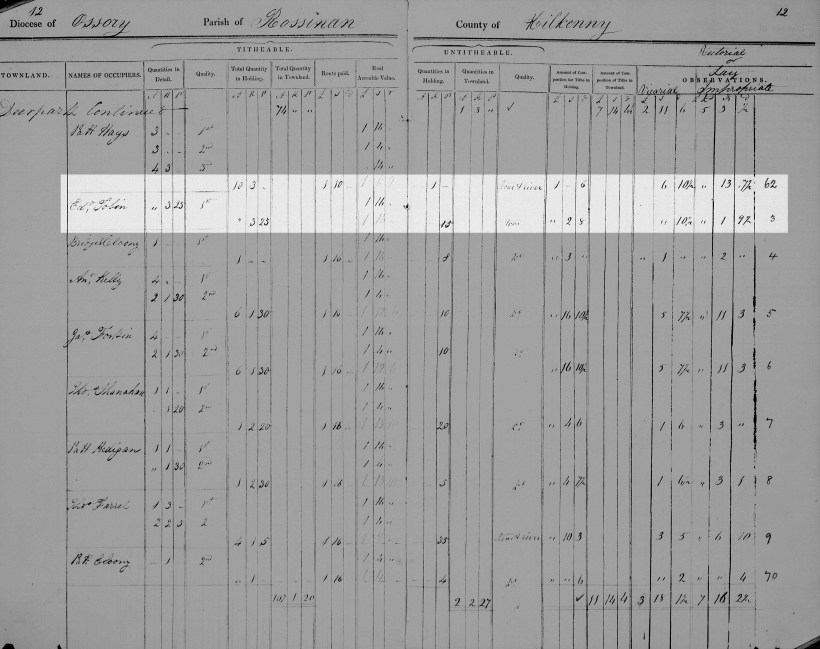 12 12
Diocese of Ossory Parish of Rossinan County of Kilkenny
TITHEABLE. UNTITHEABLE.
TOWNLAND. NAMES OF OCCUPIERS. Quantities in Detail. Quality. Total Quantity in Holding. Total Quantity in Townland. Rents paid. Real Acreable Value. Quantities in Holding. Quantities in Townland. Quality. Amount of Composition for Tithe in Holding. Amount of Composition of Tithe in Townland. Vicarial OBSERVATIONS. Rectorial or Lay Impropriate
Deerpark Continued 74 " " 1 3 " 7 14 2 11 6 5 3
Patt Hays 3 - 1st 1 14 "
3 - 2nd 1 4 "
4 3 3rd 14 "
10 3 - 1 10 - 1 - Road & river 1 - 6 6 10½ " 13 7½ 62
Edwd Tobin " 3 25 1st 1 14 "
" 3 25 15 " 2 8 " 10½ " 1 9½ 3
Bridget Cloony 1 - 1st 1 14 "
1 - - 1 16 - 8 do " 3 " " 1 " " 2 " 4
Anw Kelly 4 - 1st 1 14 "
2 1 30 2nd 1 4 "
6 1 30 1 16 10 do " 16 10½ 5 7½ " 11 3 5
Jas 4 - 1st 1 14 "
2 1 30 2nd 1 4 " 10 do
6 1 30 1 16 - " 16 10½ 5 7½ " 11 3 6
Thos Shanahan 1 1 - 1st 1 14 "
1 20 2nd 1 4 "
1 2 20 1 16 - 20 do " 4 6 1 6 " 3 " 7
Patt Hedigan 1 1 - 1st 1 14 "
" 1 30 2nd 1 4 "
1 2 30 1 16 - 5 do " 4 7½ 1 6½ " 3 1 8
Thos Farrel 1 3 - 1st 1 14 "
2 2 5 2 1 4 "
4 1 5 1 16 - 35 Road & river " 10 3 3 5 " 6 10 9
Patt Cloony - 1 - 2nd 1 4 "
" 1 - 1 16 4 do " " 6 " 2 " " 4 70
107 1 20 2 2 27 11 14 4 3 18 7 16